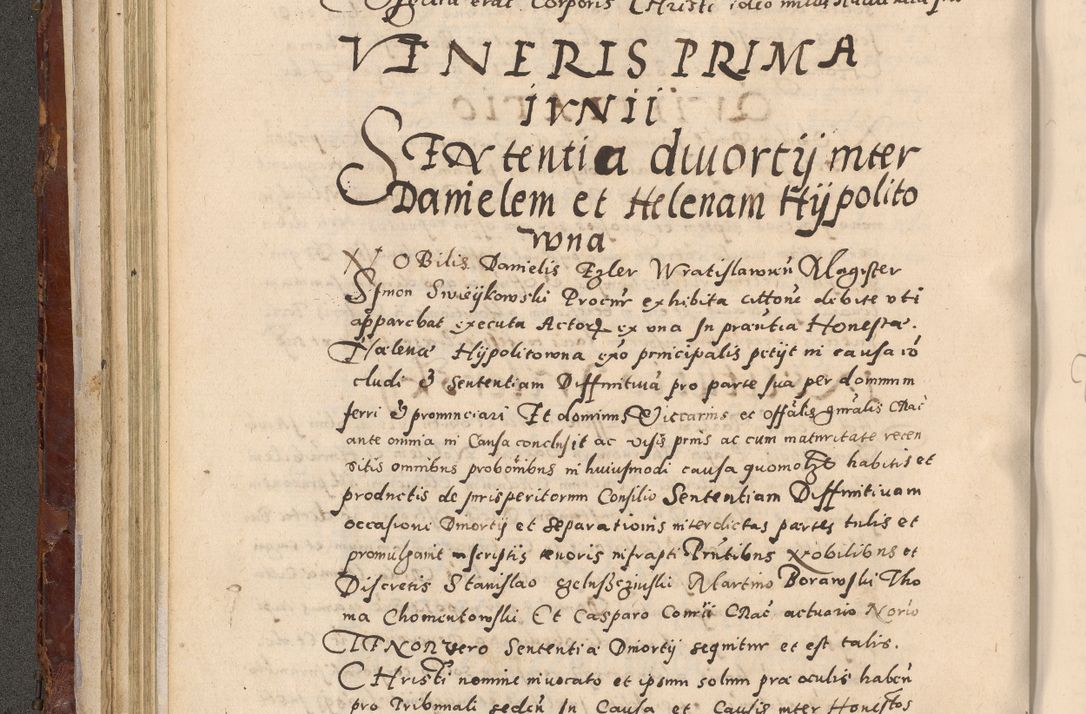 VENERIS PRIMA
IVNII
SENtentia diuortij inter
Danielem et Helenam Hÿpolito
wna
NOBilis Danielis Ezler Wratislawień Magister
Simon Swieÿkowski Procur exhibita cittone debite vti
apparebat executa Actor ex vna In præntia Honestæ.
Hælenæ Hÿpolitowna exo principalis petijt in causa co
cludi & sententiam Diffinitiuā pro parte sua per dominum
ferri & pronunciari Et dominus Viccarius et offālis gnrālis Crac
ante omnia in Causa conclusit ac visis prius ac cum maturitate recen
sitis omnibus probōnibus in huiusmodi causa quomolzt habitis et
productis de jurisperitorum Consilio Sententiam Diffinitiuam
occasione Diuortij et separationis interdictas partes tulit et
promulgauit in scriptis tenoris infrapti Prntibus Nobilibus et
Discretis Stanislao Martino Borawski Tho
ma Chomentowski Et Casparo Comrii Crac actuario Norio
TENOR vero Sententiæ Diuortij sequitur et est talis.
CHristi nomine inuocato et ipsum solum præ oculis haben
pro Tribunali seden In Causa et Causis inter Honestos